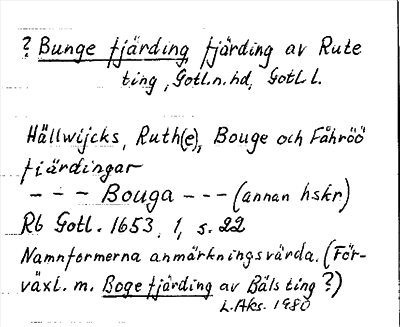 ? Bunge fjärding, fjärding av Rute
ting, Gotl.n.hd, Gotl. l.
Hällwijcks, Ruth(e), Bouge och Fåhröö
fiärdingar
- - - Bouga - - - (annan hskr)
Rb Gotl. 1653, 1, s. 22
Namnformerna anmärkningsvärda. (För-
växl. m. Boge fjärding av Bäls ting?)
L.Aks. 1980